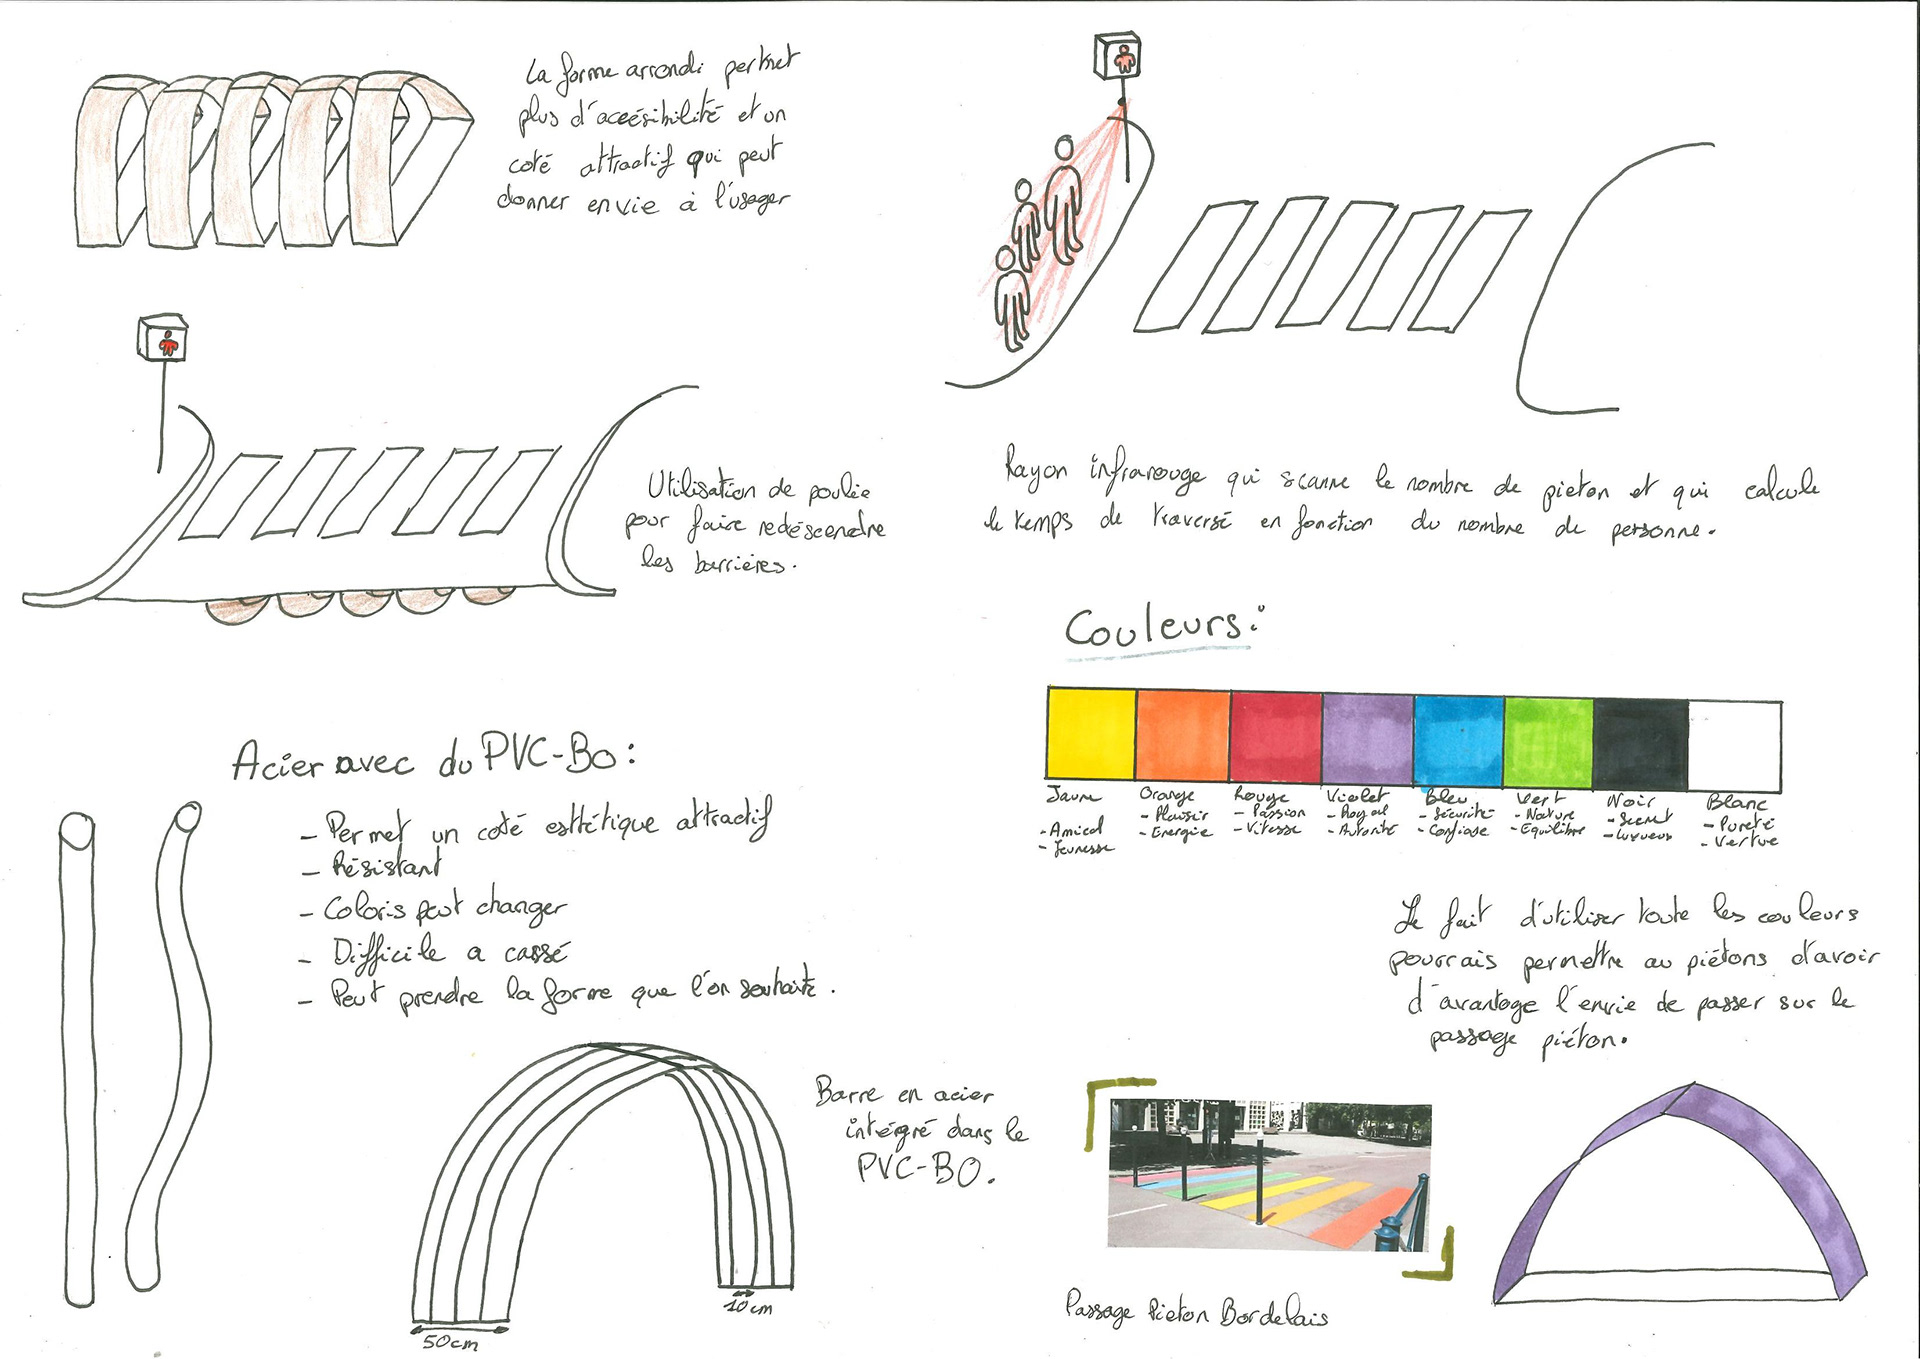 La forme arrondi permet
plus d'accésibilité et un
coté attractif qui peut
donner envie à l'usager
Utilisation de poulie
pour faire redéscendre
les barrières.
Rayon infrarouge qui scanne le nombre de pieton et qui calcule
le temps de traversé en fonction du nombre de personne.
Couleurs :
Jaune
- Amical
- Jeunesse
Orange
- Plaisir
- Energie
Rouge
- Passion
- Vitesse
Violet
- Royal
- Autorité
Bleu
- Sécurité
- Confiase
Vert
- Nature
- Equilibre
Noir
- Secret
- Luxueux
Blanc
- Pureté
- Vertue
Le fait d'utiliser toute les couleurs
pourrais permettre au piétons d'avoir
d'avantage l'envie de passer sur le
passage piéton.
Acier avec du PVC-BO :
- Permet un coté esthétique attractif
- Résistant
- Coloris peut changer
- Difficile a cassé
- Peut prendre la forme que l'on souhaite.
Barre en acier
intégré dans le
PVC-BO.
10cm
50cm
Passage Pieton Bordelais